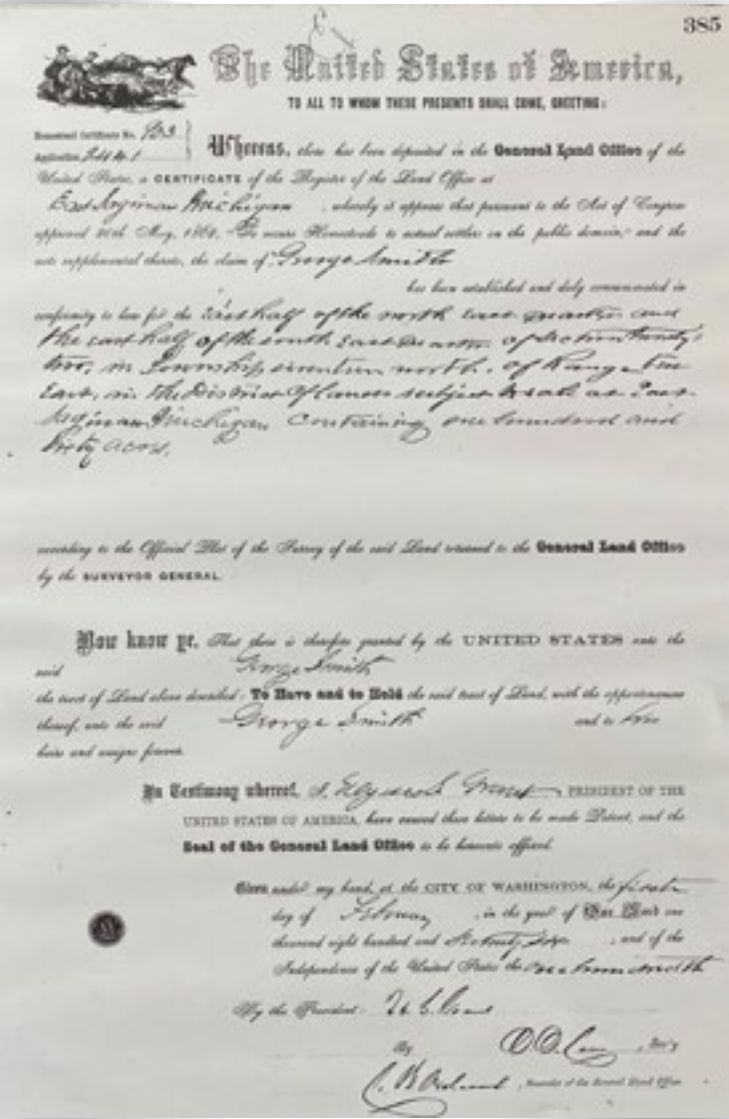 385
The United States of America,
TO ALL TO WHOM THESE PRESENTS SHALL COME, GREETING:
Homestead Certificate No.
Application
Whereas, there has been deposited in the General Land Office of the
United States, a CERTIFICATE of the Register of the Land Office at
East Saginaw Michigan, whereby it appears that pursuant to the Act of Congress
approved 20th May, 1862, "To secure Homesteads to actual settlers on the public domain," and the
acts supplemental thereto, the claim of George Smith
has been established and duly consummated in
conformity to law for the East half of the north east quarter and
the east half of the south East quarter of Section twenty
two, in Township seventeen north, of Range
East, in the District of Lands subject to sale at East
Saginaw Michigan containing one hundred and
sixty acres.
according to the Official Plat of the Survey of the said Land returned to the General Land Office
by the SURVEYOR GENERAL.
Now know ye, That there is therefore granted by the UNITED STATES unto the
said George Smith
the tract of Land above described: To Have and to Hold the said tract of Land, with the appurtenances
thereof, unto the said George Smith and to his
heirs and assigns forever.
In Testimony whereof, I, Ulysses S. Grant, PRESIDENT OF THE
UNITED STATES OF AMERICA, have caused these letters to be made Patent, and the
Seal of the General Land Office to be hereunto affixed.
Given under my hand, at the CITY OF WASHINGTON, the first
day of February, in the year of Our Lord one
thousand eight hundred and Seventy Six, and of the
Independence of the United States the one hundredth
By the President: U. S. Grant
By D. D. Cone, Sec'y
Recorder of the General Land Office